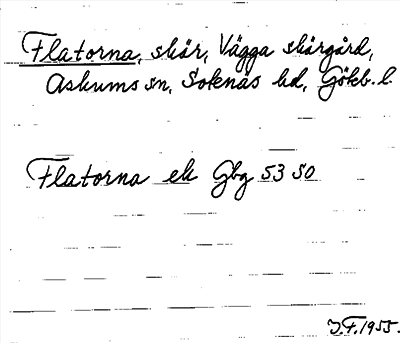 Flatorna, skär, Vägga skärgård,
Askums sn, Sotenäs hd, Göteb. l.
Flatorna ek Gbg 53 SO
J.F. 1955.